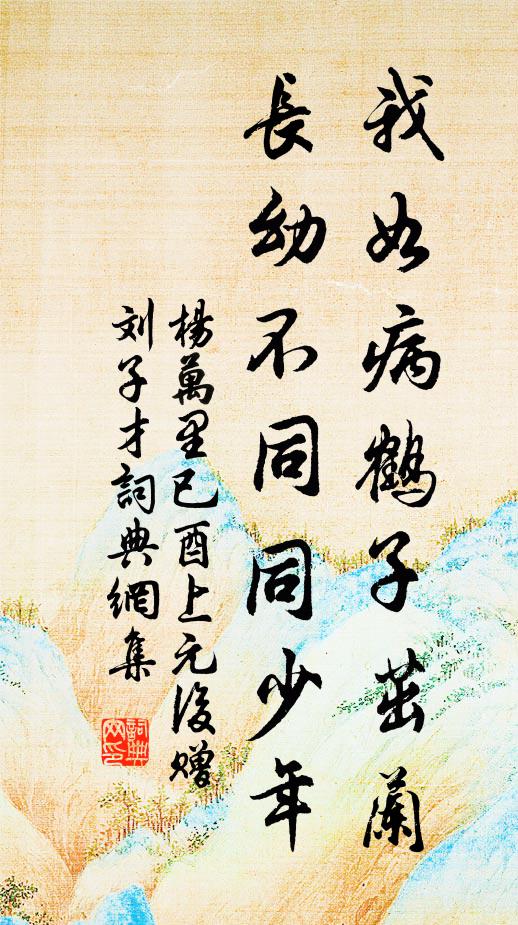 我如病鶴子茁蘭
長幼不同同少年
楊萬里已酉上元後贈
刘子才詞典網集
詞典
网印